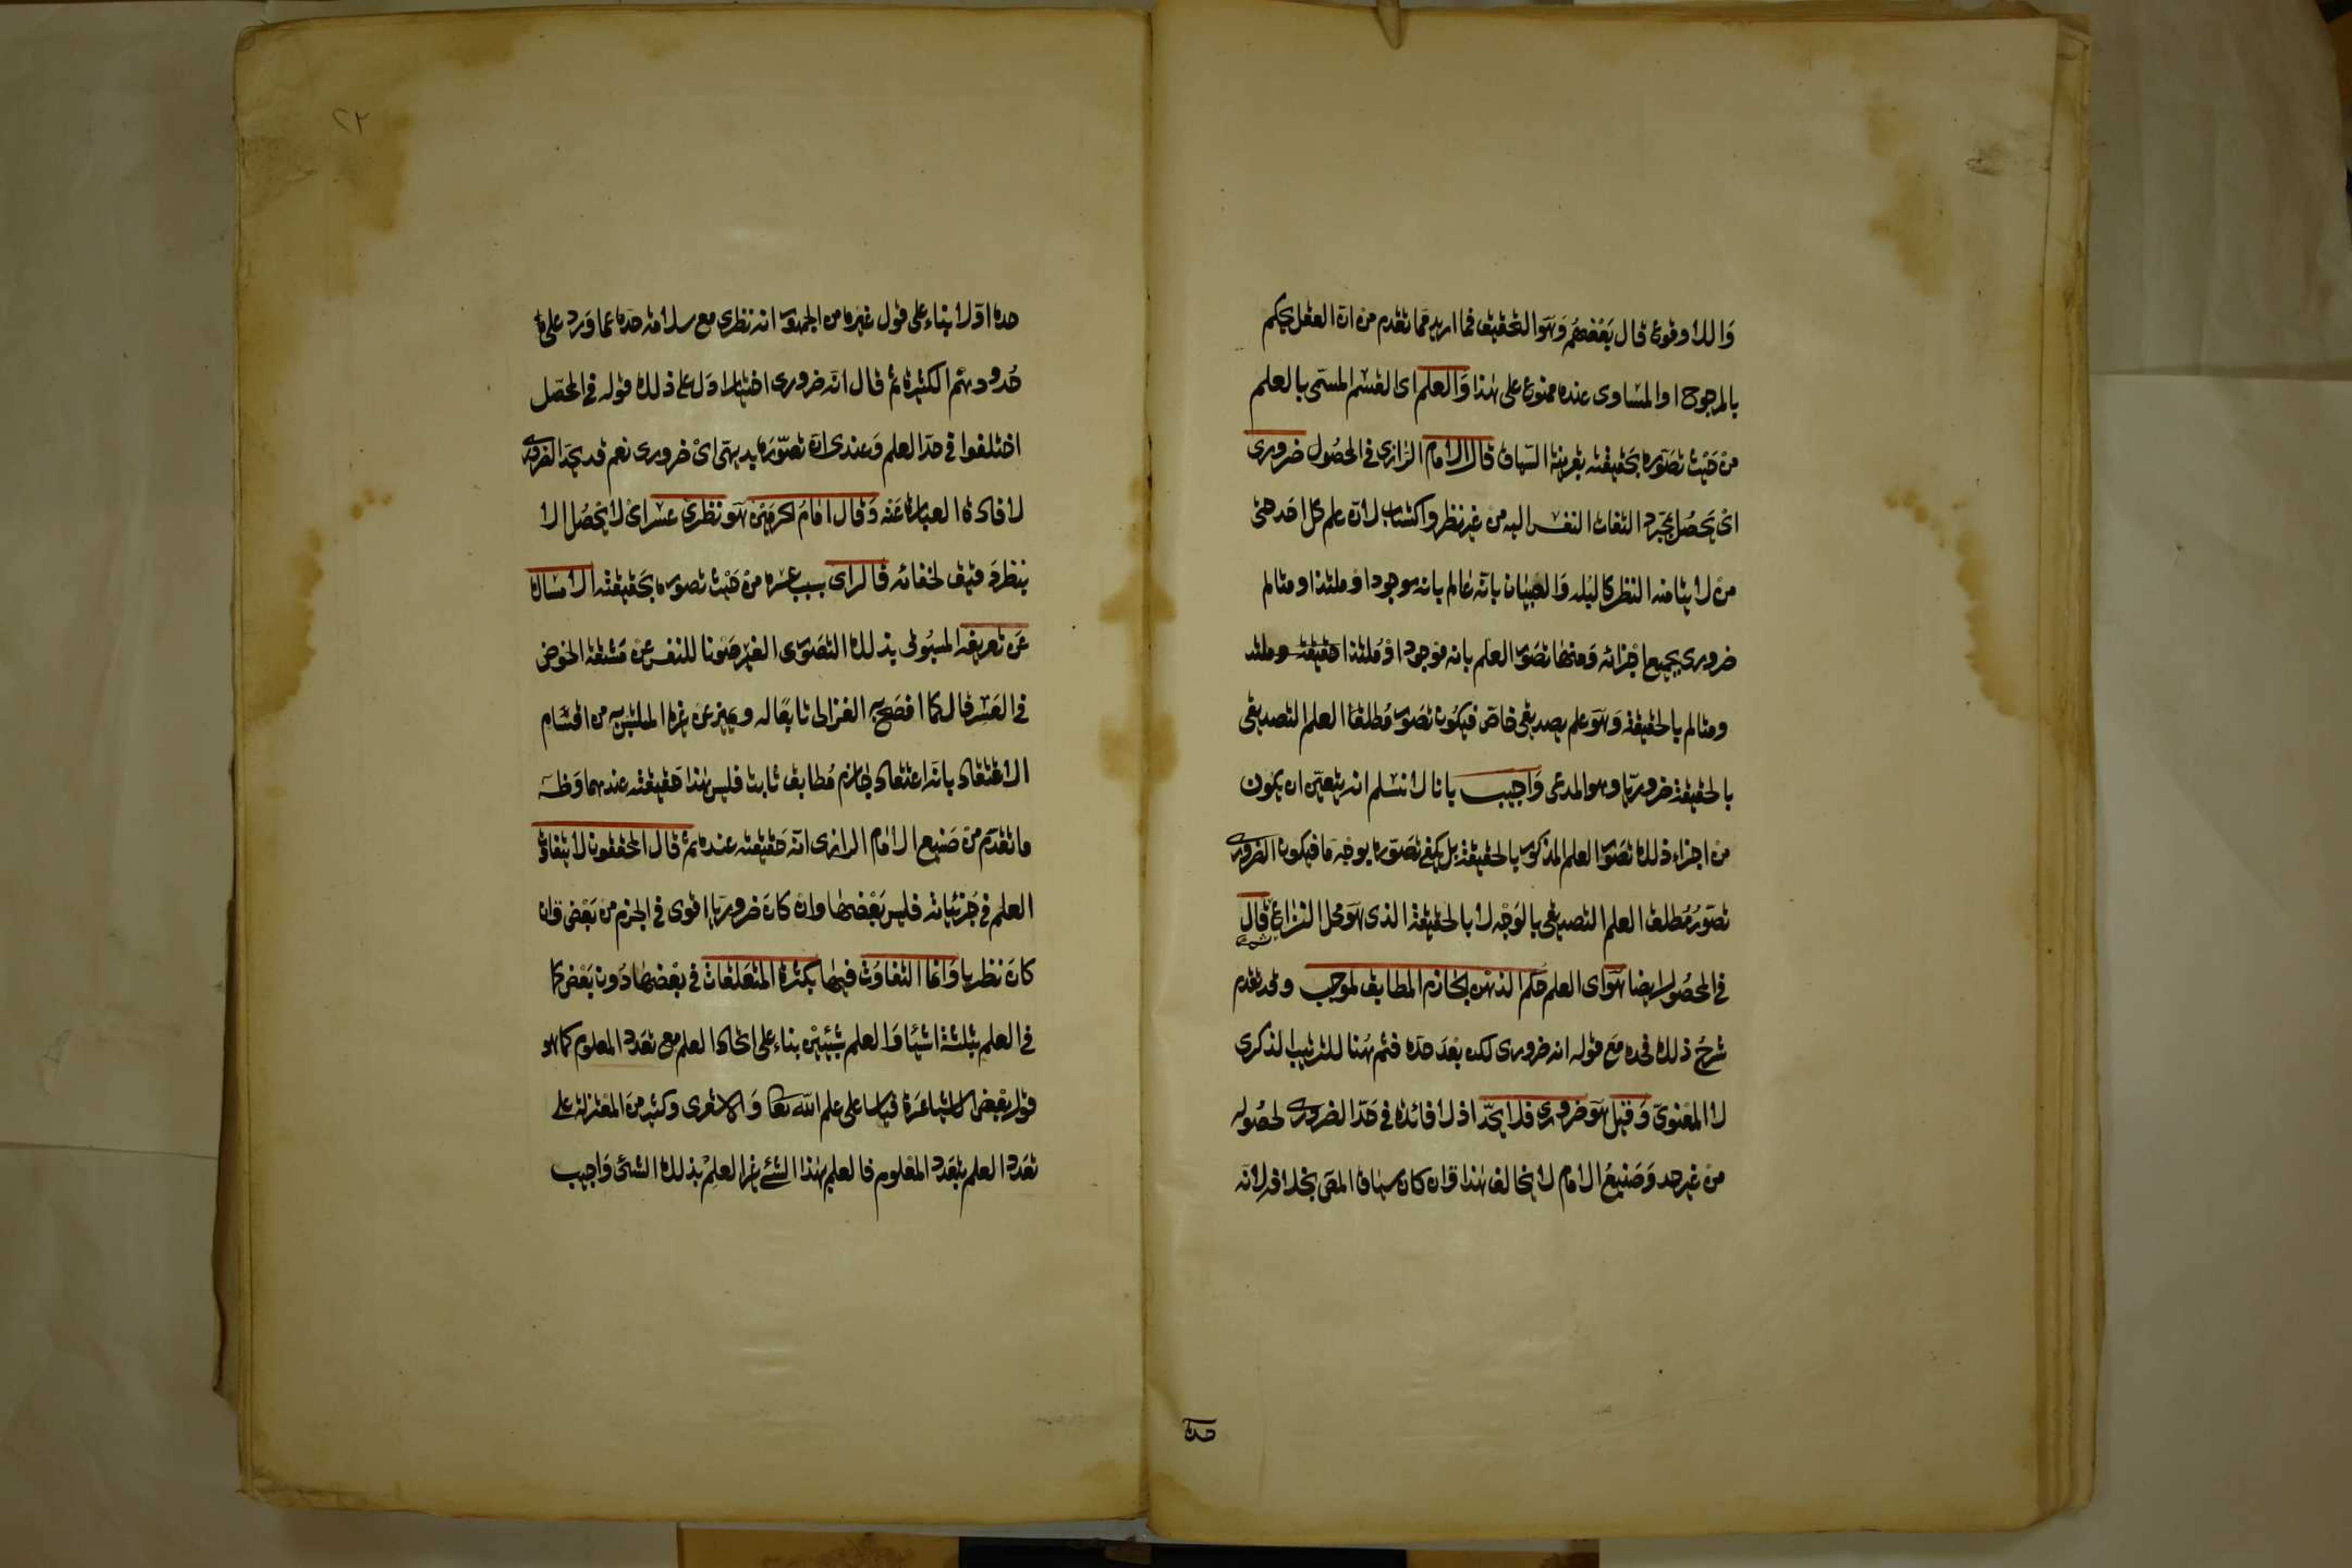 واللا وقوع قال بعضهم وهو التحقيق فما اريد مما تقدم من ان العقل يحكم
بالمرجوح او المساوى عنده ممنوع على هذا والعلم اى القسم المسمى بالعلم
من حيث تصوره بحقيقته بقرينة السياق قال الامام الرازى فى المحصول ضرورى
اى يحصل بمجرد التفات النفس اليه من غير نظر واكتساب لان علم كل احد حتى
من لا يتأمنه النظر كالبله والصبيان بانه عالم بانه موجود او ملتذ او متالم
ضرورى بجميع اجزائه ومنها تصور العلم بانه موجود او ملتذ حقيقة وملتذ
ومتالم بالحقيقة وهو علم تصديقى خاص فيكون تصور مطلقا العلم التصديقى
بالحقيقة ضروريا وهو المدعى واجيب بانا لا نسلم انه يتعين ان يكون
من اجزاء ذلك تصور العلم المذكور بالحقيقة بل يكفى تصوره بوجه ما فيكون الضرورى
تصور مطلق العلم التصديقى بالوجه لا بالحقيقة الذى هو محل النزاع ثم قال
فى المحصول ايضا هو اى العلم حكم الذهن الجازم المطابق لموجب وقد تقدم
شرح ذلك فحده مع قوله انه ضرورى لكن بعد حده فثم هنا للترتيب الذكرى
لا المعنوى وقيل هو ضرورى فلا يحد اذ لا فائدة فى حد الضرورى لحصوله
من غير حد وصنيع الامام لا يخالف هذا وان كان سياق المص بخلافه لانه
حده
٢٢
حده اولا بناء على قول غيره من الجمهور انه نظرى مع سلامة حده عما ورد على
حدودهم الكثيرة ثم قال انه ضرورى اختيارا دل على ذلك قوله فى المحصل
اختلفوا فى حد العلم وعندى ان تصوره بديهى اى ضرورى نعم قد يحد الضرورى
لافادة العبارة عنه وقال امام الحرمين هو نظرى عسر اى لا يحصل الا
بنظر دقيق لخفائه قال راى بسبب عسره من حيث تصوره بحقيقته الامساك
عن تعريفه المسبوق بذلك التصور الغير صونا للنفس عن مشقة الخوض
فى العسر قال كما افصح به الغزالى تابعا له ويميز عن غيره الملتبس به من اقسام
الاعتقاد بانه اعتقاد جازم مطابق ثابت فليس هذا حقيقته عندهما وظـ
ما تقدم من صنيع الامام الرازى انه حقيقته عنده ثم قال المحققون لا يتفاوت
العلم فى جزئياته فليس بعضها وان كان ضروريا اقوى فى الجزم من بعض وان
كان نظريا وانما التفاوت فيها بكثرة المتعلقات فى بعضها دون بعض كما
فى العلم بثلثة اشيا والعلم بشيئين بناء على اتحاد العلم مع تعدد المعلوم كما هو
قول بعض الاشاعرة قياسا على علم الله تعا والاشعرى وكثير من المعتزلة على
تعدد العلم بتعدد المعلوم فالعلم بهذا الشئ غير العلم بذلك الشئ واجيب